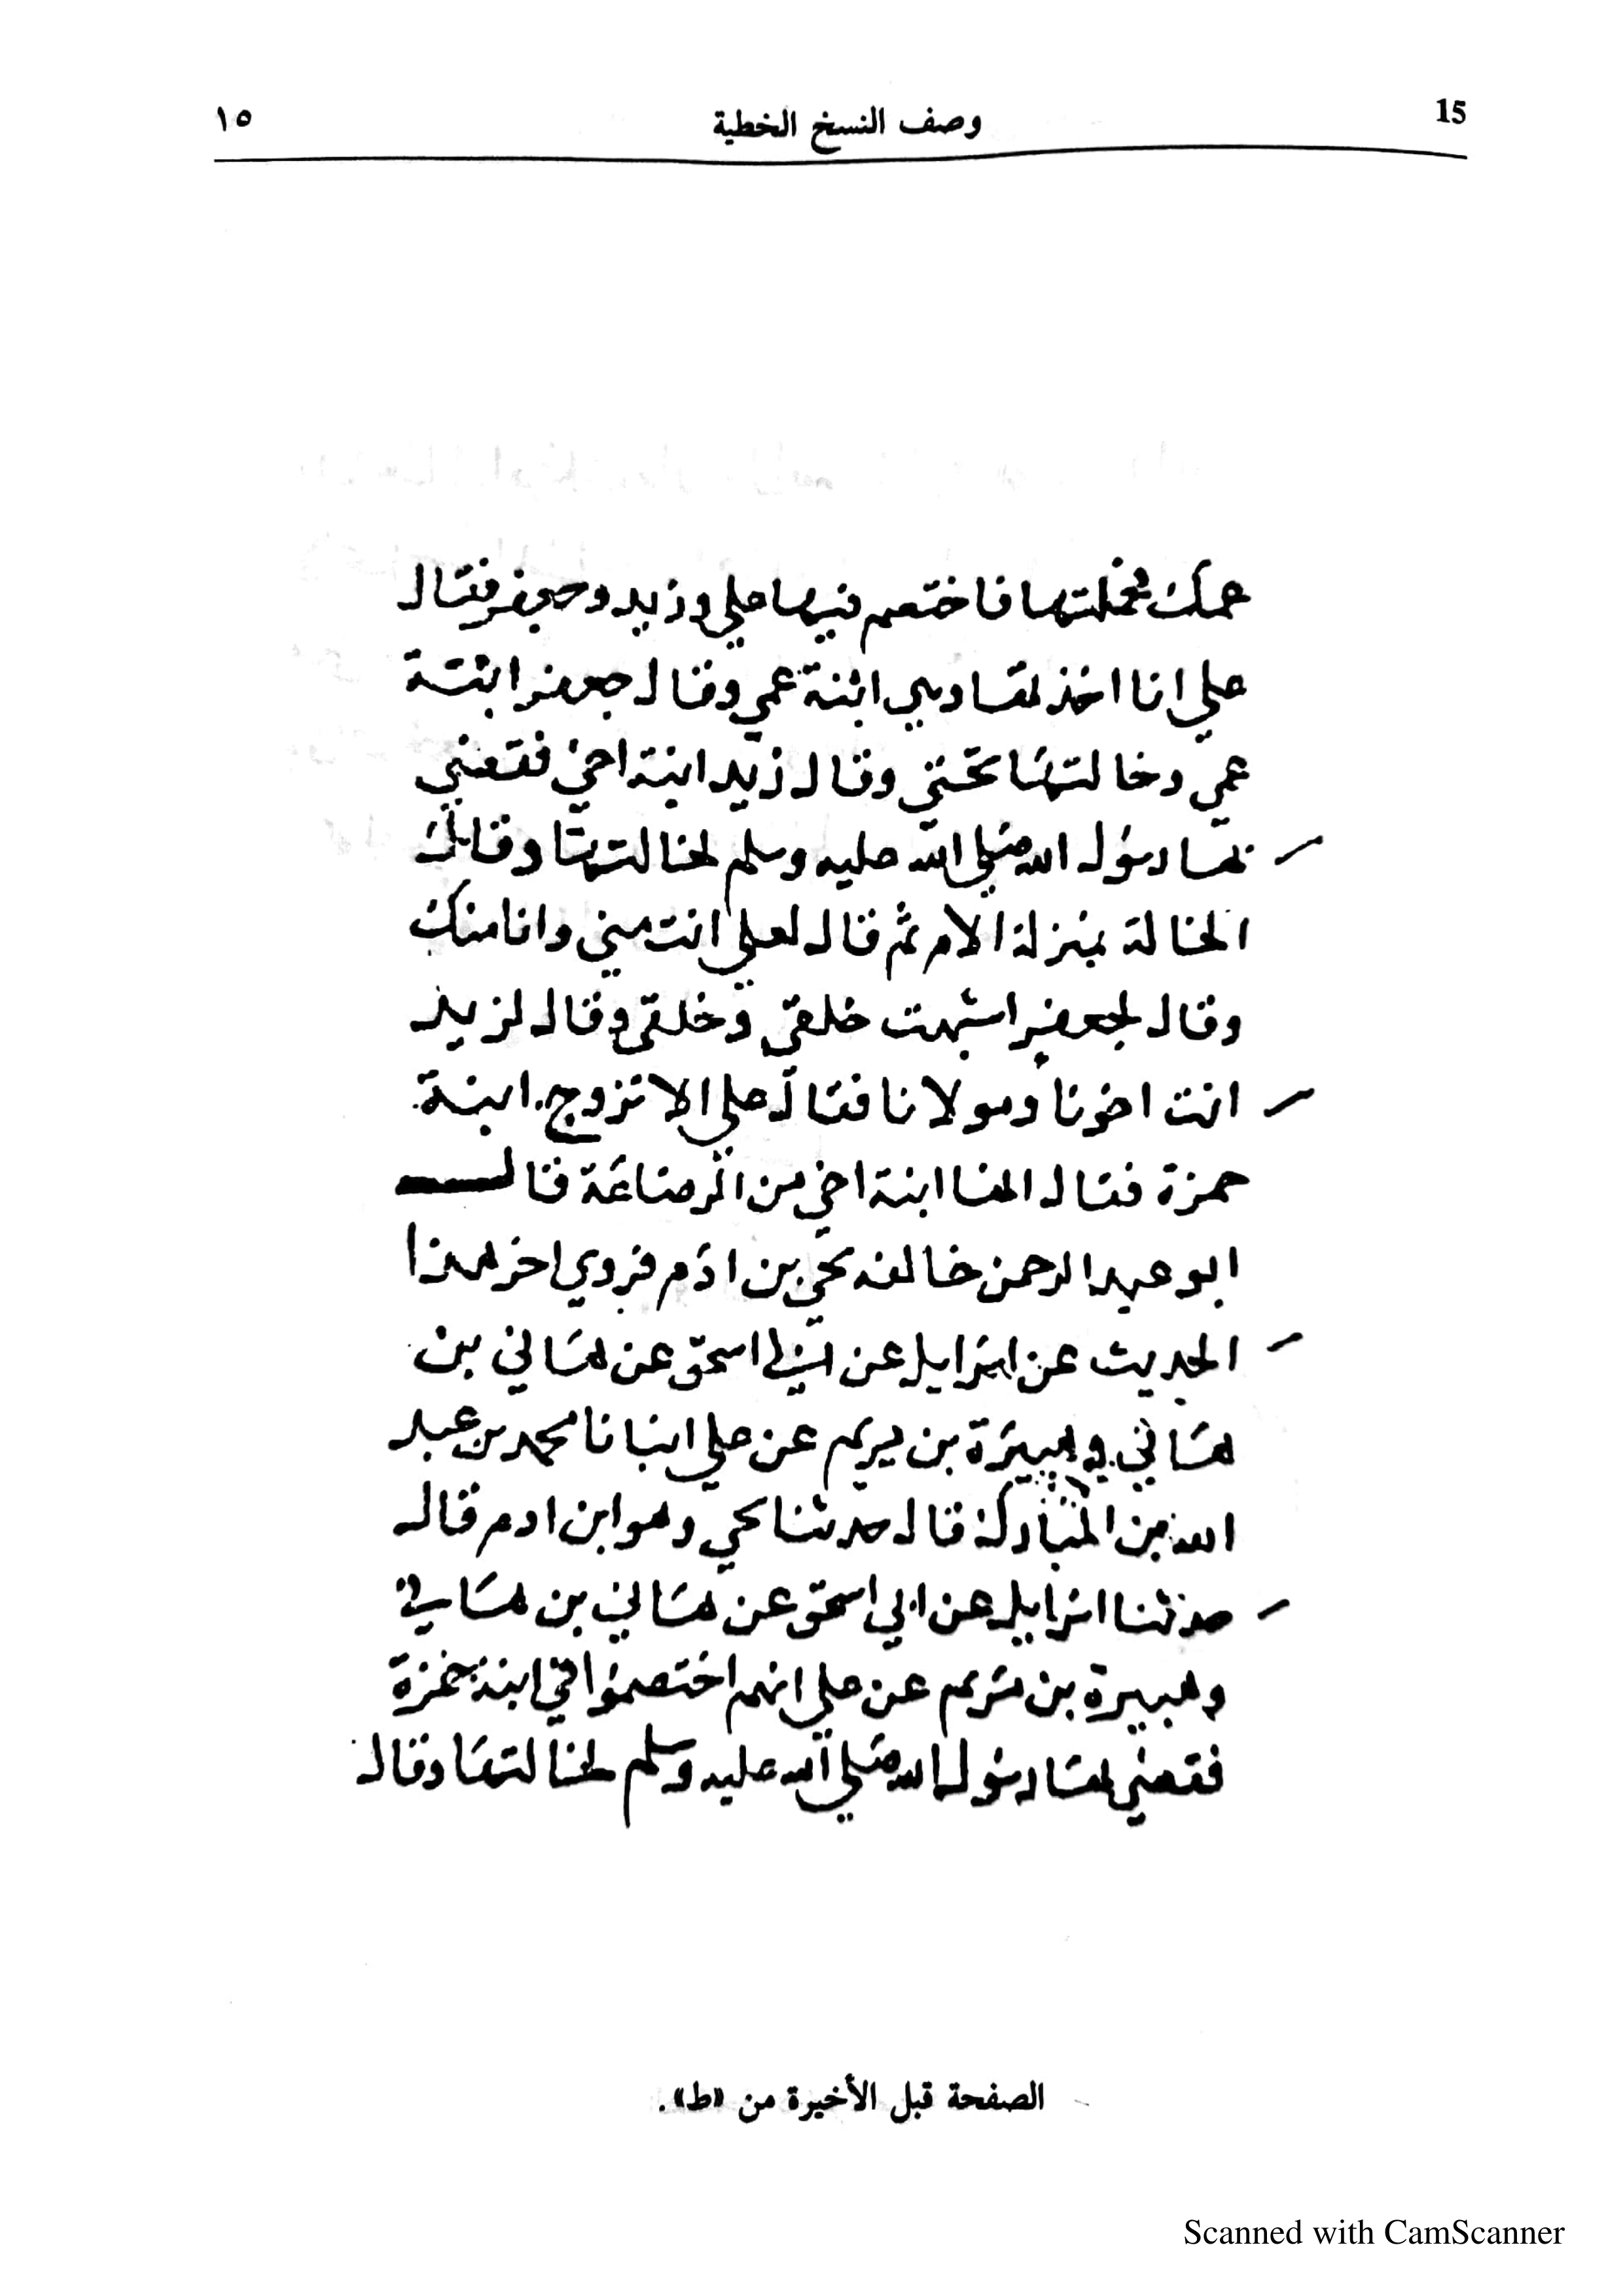 15 وصف النسخ الخطية ١٥
عمك فحملتها فاختصم فيها علي وزيد وجعفر فقال
علي انا اخذتها وهي ابنة عمي وقال جعفر ابنة
عمي وخالتها تحتي وقال زيد ابنة اخي فقضي
بها رسول الله صلي الله عليه وسلم لخالتها وقال
الخالة بمنزلة الام ثم قال لعلي انت مني وانا منك
وقال لجعفر اشبهت خلقي وخلقي وقال لزيد
انت اخونا ومولانا فقال علي الا تزوج ابنة
حمزة فقال انها ابنة اخي من الرضاعة قال
ابو عبد الرحمن خالفه يحي بن ادم فروي اخر هذا
الحديث عن اسرايل عن ابي اسحق عن هاني بن
هاني و هبيرة بن يريم عن علي انبانا محمد بن عبد
الله بن المبارك قال حدثنا يحي وهو ابن ادم قال
حدثنا اسرايل عن ابي اسحق عن هاني بن هاني
وهبيرة بن يريم عن علي انهم اختصموا في ابنة حمزة
فقضي بها رسول الله صلي الله عليه وسلم لخالتها وقال
الصفحة قبل الأخيرة من «ط».
Scanned with CamScanner